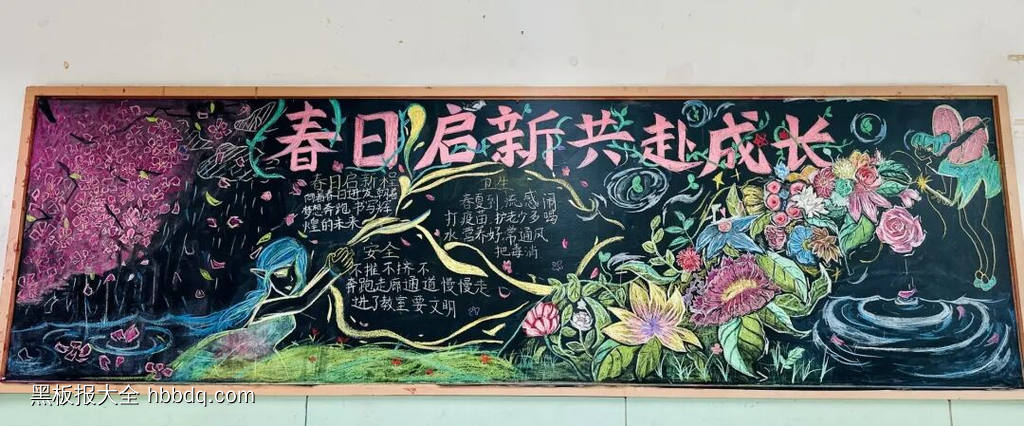 春日启新共赴成长
春日启新
梦想奔跑 书写辉
煌的未来
卫生
春夏到 流感闹
打疫苗
水 营养好 常通风
把毒消
安全
不推不挤不
奔跑走廊通道慢慢走
进了教室要文明
黑板报大全 hbbdq.com